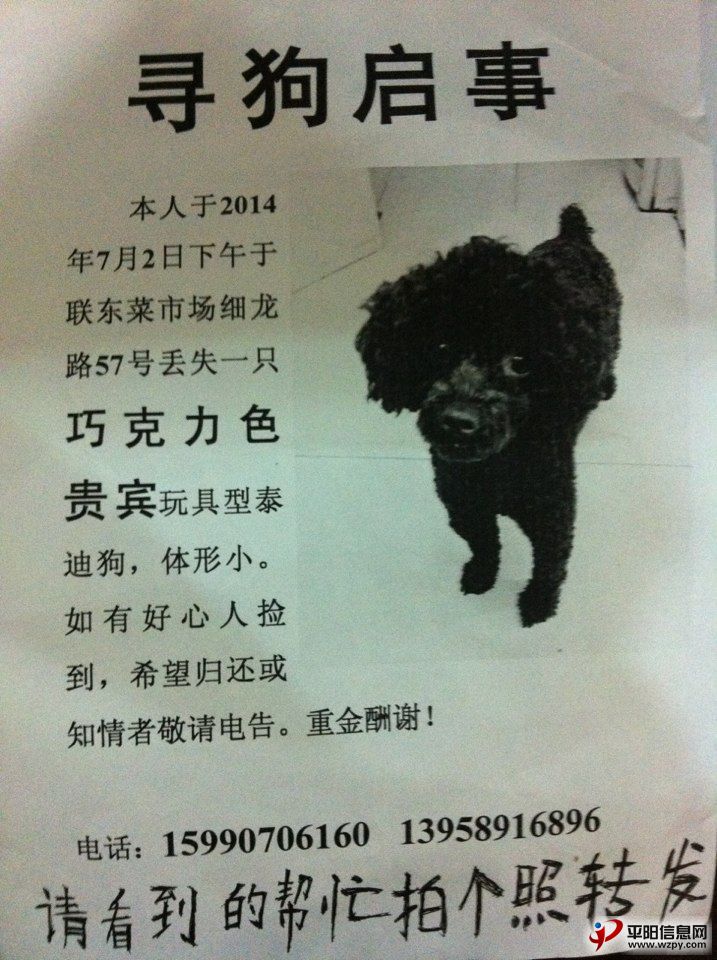 寻狗启事
本人于2014
年7月2日下午于
联东菜市场细龙
路57号丢失一只
巧克力色
贵宾玩具型泰
迪狗，体形小。
如有好心人捡
到，希望归还或
知情者敬请电告。重金酬谢！
电话：15990706160 13958916896
请看到的帮忙拍个照转发
平阳信息网
www.wzpy.com